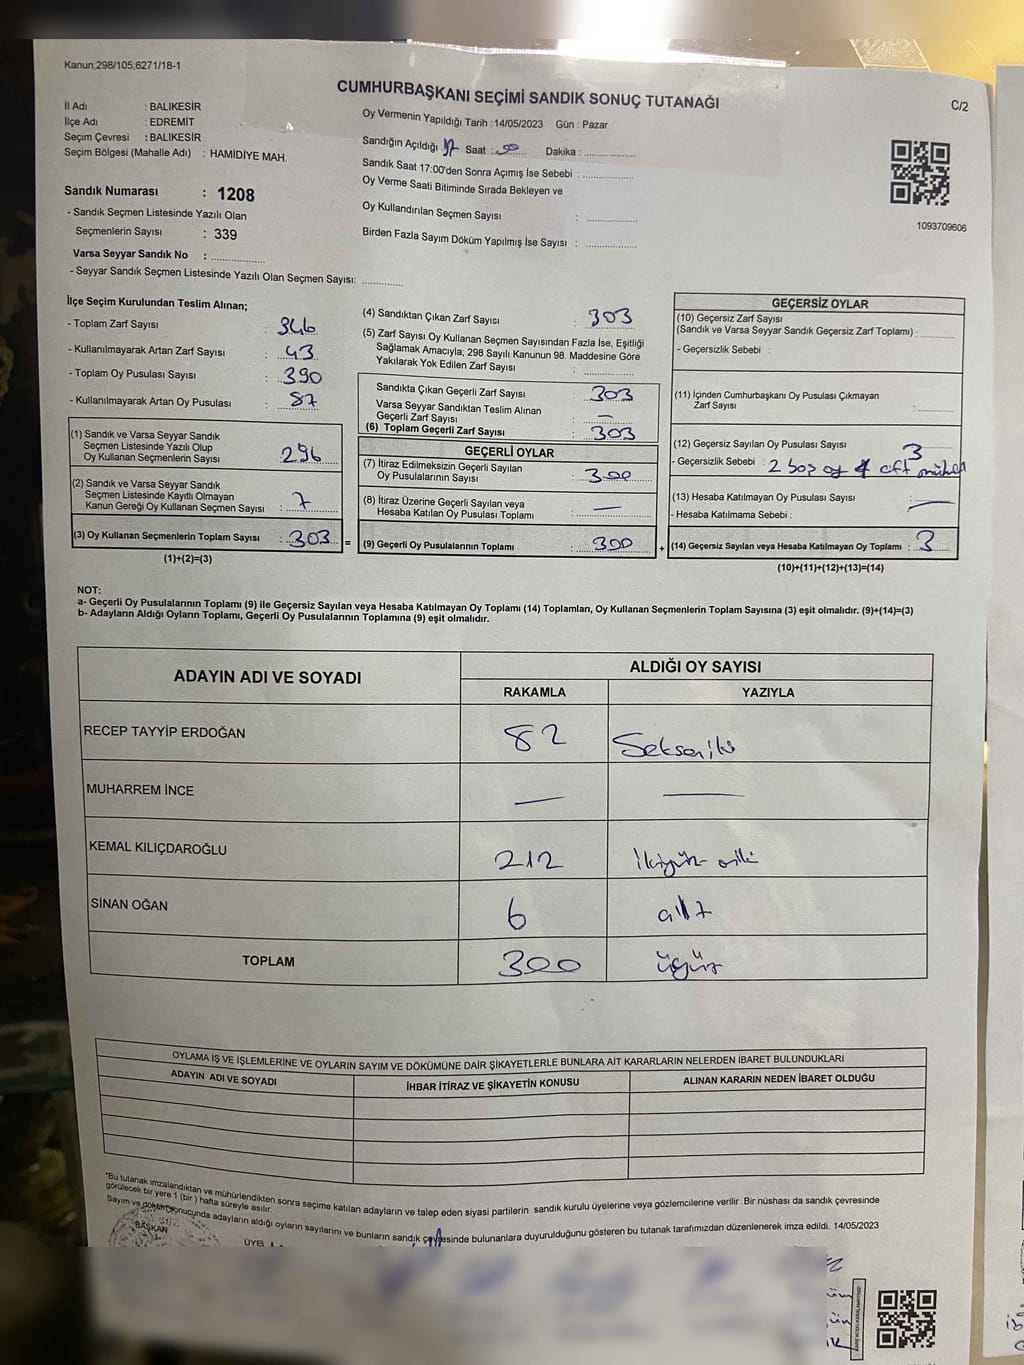 Kanun,298/105,6271/18-1
CUMHURBAŞKANI SEÇİMİ SANDIK SONUÇ TUTANAĞI
C/2
İl Adı : BALIKESİR
İlçe Adı : EDREMİT
Seçim Çevresi : BALIKESİR
Seçim Bölgesi (Mahalle Adı) : HAMİDİYE MAH.
Sandık Numarası : 1208
- Sandık Seçmen Listesinde Yazılı Olan
Seçmenlerin Sayısı : 339
Varsa Seyyar Sandık No :
- Seyyar Sandık Seçmen Listesinde Yazılı Olan Seçmen Sayısı:
Oy Vermenin Yapıldığı Tarih : 14/05/2023 Gün : Pazar
Sandığın Açıldığı Saat : Dakika :
Sandık Saat 17:00'den Sonra Açımış İse Sebebi :
Oy Verme Saati Bitiminde Sırada Bekleyen ve
Oy Kullandırılan Seçmen Sayısı :
Birden Fazla Sayım Döküm Yapılmış İse Sayısı :
1093709606
İlçe Seçim Kurulundan Teslim Alınan;
- Toplam Zarf Sayısı : 346
- Kullanılmayarak Artan Zarf Sayısı : 43
- Toplam Oy Pusulası Sayısı : 390
- Kullanılmayarak Artan Oy Pusulası : 87
(1) Sandık ve Varsa Seyyar Sandık
Seçmen Listesinde Yazılı Olup
Oy Kullanan Seçmenlerin Sayısı : 296
(2) Sandık ve Varsa Seyyar Sandık
Seçmen Listesinde Kayıtlı Olmayan
Kanun Gereği Oy Kullanan Seçmen Sayısı : 7
(3) Oy Kullanan Seçmenlerin Toplam Sayısı : 303 =
(1)+(2)=(3)
(4) Sandıktan Çıkan Zarf Sayısı : 303
(5) Zarf Sayısı Oy Kullanan Seçmen Sayısından Fazla İse, Eşitliği
Sağlamak Amacıyla; 298 Sayılı Kanunun 98. Maddesine Göre
Yakılarak Yok Edilen Zarf Sayısı :
Sandıkta Çıkan Geçerli Zarf Sayısı : 303
Varsa Seyyar Sandıktan Teslim Alınan
Geçerli Zarf Sayısı : —
(6) Toplam Geçerli Zarf Sayısı : 303
GEÇERLİ OYLAR
(7) İtiraz Edilmeksizin Geçerli Sayılan
Oy Pusulalarının Sayısı : 300
(8) İtiraz Üzerine Geçerli Sayılan veya
Hesaba Katılan Oy Pusulası Toplamı : —
(9) Geçerli Oy Pusulalarının Toplamı : 300 +
GEÇERSİZ OYLAR
(10) Geçersiz Zarf Sayısı
(Sandık ve Varsa Seyyar Sandık Geçersiz Zarf Toplamı) :
- Geçersizlik Sebebi :
(11) İçinden Cumhurbaşkanı Oy Pusulası Çıkmayan
Zarf Sayısı :
(12) Geçersiz Sayılan Oy Pusulası Sayısı : 3
- Geçersizlik Sebebi : 2 boş oy çift mühür
(13) Hesaba Katılmayan Oy Pusulası Sayısı : —
- Hesaba Katılmama Sebebi :
(14) Geçersiz Sayılan veya Hesaba Katılmayan Oy Toplamı : 3
(10)+(11)+(12)+(13)=(14)
NOT:
a- Geçerli Oy Pusulalarının Toplamı (9) ile Geçersiz Sayılan veya Hesaba Katılmayan Oy Toplamı (14) Toplamları, Oy Kullanan Seçmenlerin Toplam Sayısına (3) eşit olmalıdır. (9)+(14)=(3)
b- Adayların Aldığı Oyların Toplamı, Geçerli Oy Pusulalarının Toplamına (9) eşit olmalıdır.
ADAYIN ADI VE SOYADI
ALDIĞI OY SAYISI
RAKAMLA YAZIYLA
RECEP TAYYİP ERDOĞAN 82 Sekseniki
MUHARREM İNCE — —
KEMAL KILIÇDAROĞLU 212 İkiyüz oniki
SİNAN OĞAN 6 altı
TOPLAM 300 üçyüz
OYLAMA İŞ VE İŞLEMLERİNE VE OYLARIN SAYIM VE DÖKÜMÜNE DAİR ŞİKAYETLERLE BUNLARA AİT KARARLARIN NELERDEN İBARET BULUNDUKLARI
ADAYIN ADI VE SOYADI İHBAR İTİRAZ VE ŞİKAYETİN KONUSU ALINAN KARARIN NEDEN İBARET OLDUĞU
*Bu tutanak imzalandıktan ve mühürlendikten sonra seçime katılan adayların ve talep eden siyasi partilerin sandık kurulu üyelerine veya gözlemcilerine verilir .Bir nüshası da sandık çevresinde
görülecek bir yere 1 (bir ) hafta süreyle asılır.
Sayım ve döküm sonucunda adayların aldığı oyların sayılarını ve bunların sandık çevresinde bulunanlara duyurulduğunu gösteren bu tutanak tarafımızdan düzenlenerek imza edildi. 14/05/2023
BAŞKAN
ÜYE